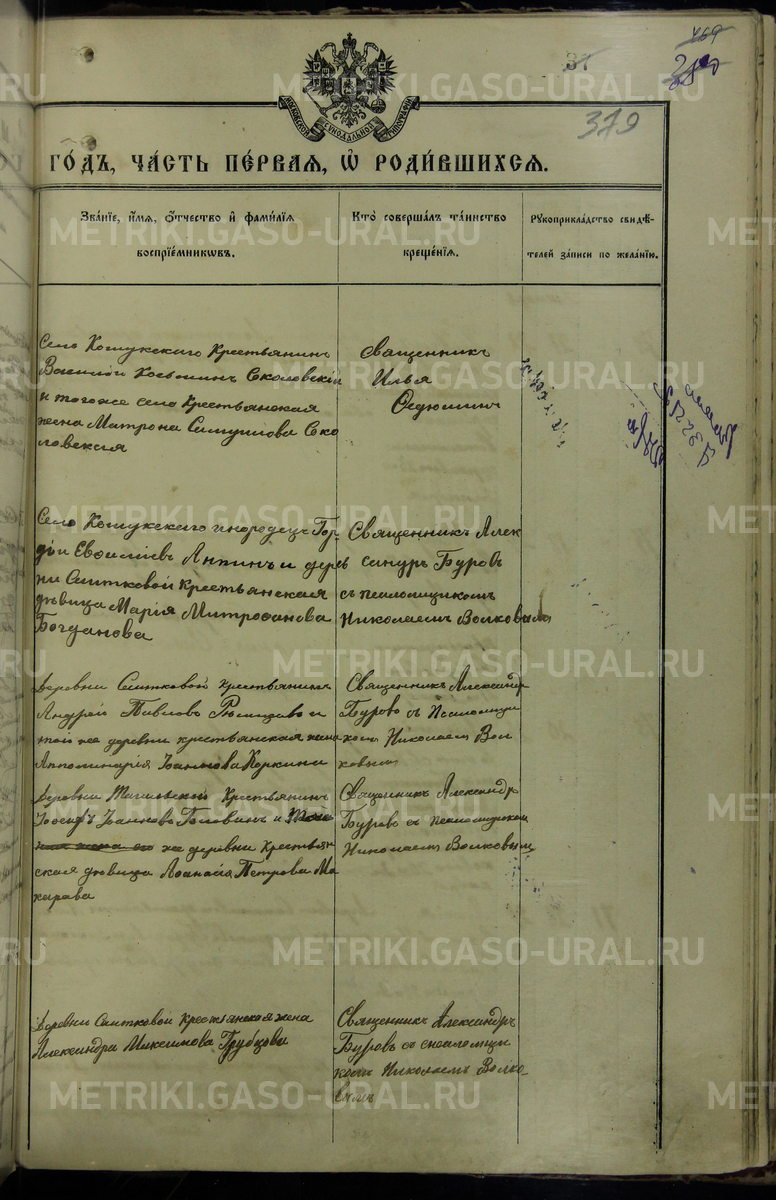 469
37
379
МОСКОВСКОЙ СѴНОДАЛЬНОЙ ТИПОГРАФІИ
ГО́ДЪ, ЧА́СТЬ ПЕ́РВАЯ, Ѽ РОДИ́ВШИХСЯ.
Зва́нїе, и́мѧ, о́тчество и҆ фами́лїѧ
воспрїе́мникѡвъ.
Кто̀ соверша́лъ та́инство
креще́нїѧ.
Рꙋкоприкла́дство свидѣ́-
телей за́писи по жела́нїю.
Село Кошукскаго Крестьянинъ
Василій Косьминъ Соколовскій
и тогоже село Крестьянская
жена Матрона Самуилова Ско
ловская
Священникъ
Илья
Ѳедюшинъ
Село Кошукскаго инородецъ Гор-
дѣи Евсиліевъ Анпинъ и дерев
ни Саитковой крестьянская
дѣвица Марія Митрофанова
Богданова
Священникъ Алек
сандръ Буровъ
съ псаломщикомъ
Николаемъ Волковымъ
Деревни Саитковой крестьянинъ
Андрей Павловъ и
той же деревни крестьянская жена
Апполинарія Іоаннова Коркина
Священникъ Александр
Бурово съ Псаломщи
комъ Николаем Вол
ковымъ
Деревни Крестьянинъ
Іосифъ Іанновъ Головинъ и
же деревни крестьян
ская дѣвица Аѳанасія Петрова Ма
карова
Священникъ Александръ
Бурово съ псаломщиком
Николаемъ Волковымъ
Деревни Саитковой крестьянская жена
Александра Максимова Грубцова
Священникъ Александръ
Буровъ со снсаломщи
комъ Николаемъ Волко-
вымъ
METRIKI.GASO-URAL.RU